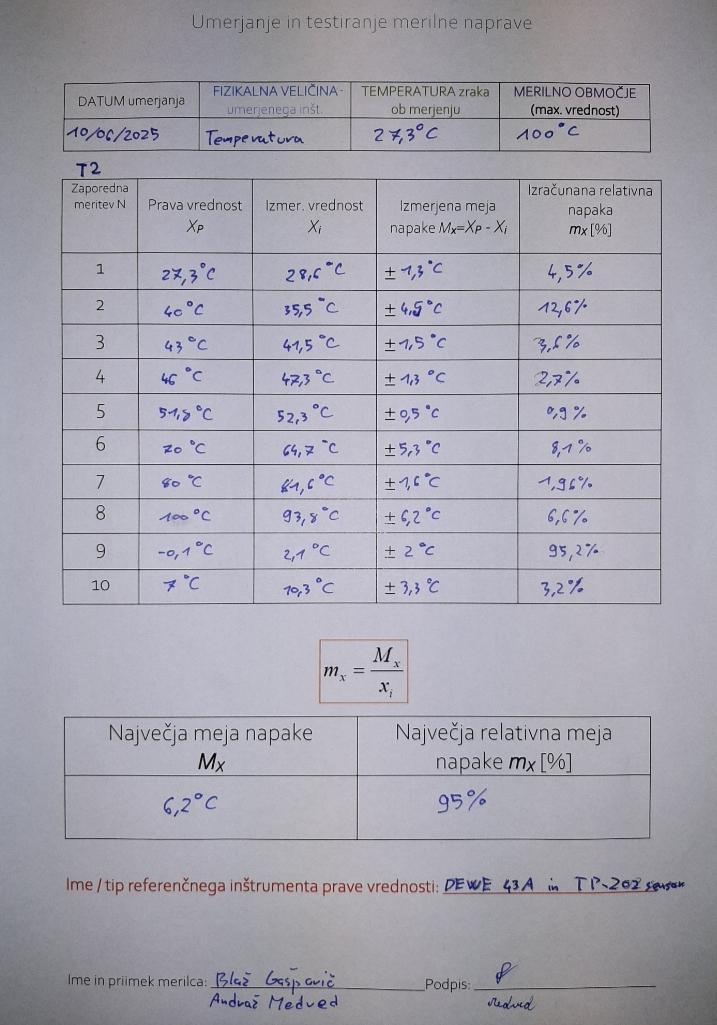 Umerjanje in testiranje merilne naprave
DATUM umerjanja FIZIKALNA VELIČINA - umerjenega inšt. TEMPERATURA zraka ob merjenju MERILNO OBMOČJE (max. vrednost)
10/06/2025 Temperatura 27,3°C 100°C
T2
Zaporedna meritev N Prava vrednost XP Izmer. vrednost Xi Izmerjena meja napake Mx=XP - Xi Izračunana relativna napaka mx [%]
1 27,3°C 28,6°C ± 1,3°C 4,5%
2 40°C 35,5°C ± 4,5°C 12,6%
3 43°C 41,5°C ± 1,5°C 3,6%
4 46°C 47,3°C ± 1,3°C 2,7%
5 51,8°C 52,3°C ± 0,5°C 0,9%
6 70°C 64,7°C ± 5,3°C 8,1%
7 80°C 81,6°C ± 1,6°C 1,96%
8 100°C 93,8°C ± 6,2°C 6,6%
9 -0,1°C 2,1°C ± 2°C 95,2%
10 7°C 10,3°C ± 3,3°C 3,2%
mx = Mx / xi
Največja meja napake Mx Največja relativna meja napake mx [%]
6,2°C 95%
Ime / tip referenčnega inštrumenta prave vrednosti: DEWE 43A in TP-202 sensor
Ime in priimek merilca: Blaž Gašparič Podpis:
Andraž Medved Medved